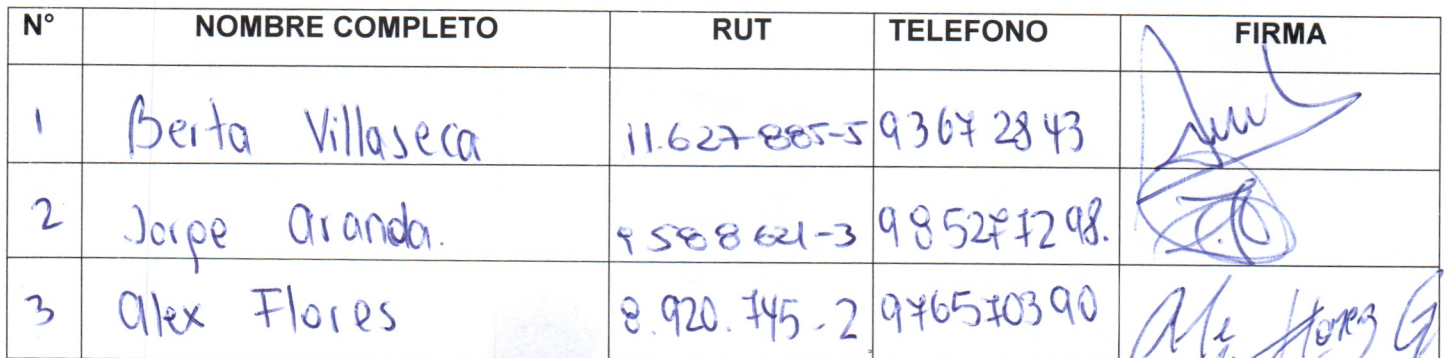 N° NOMBRE COMPLETO RUT TELEFONO FIRMA
1 Berta Villaseca 11.627-885-5 93672843
2 Jorge Aranda. 9588621-3 985277298.
3 Alex Flores 8.920.745-2 976570390 Alex Flores G